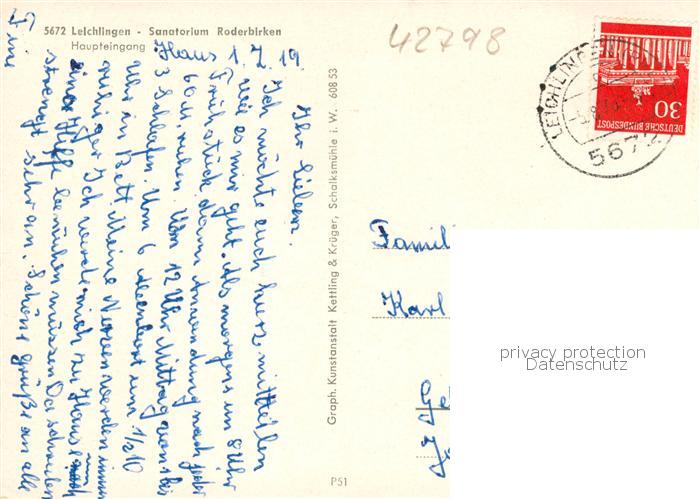 5672 Leichlingen - Sanatorium Roderbirken
Haupteingang
42798
Haus 1. Z. 19
Ihr Lieben.
Ich möchte euch kurz mitteilen
wie es mir geht. Also morgens um 8 Uhr
Frühstück dann Anwendung nach jeder
60 M. ruhen. Um 12 Uhr Mittag von bis
3 Schlafen. Um 6 Abendbrot um 1/2 10
Uhr in Bett. Meine Nerven werden immer
ruhiger. Ich werde mich zu Hause
eine Hilfe bemühen müssen Da schreiben
strengt sehr an. Schöne Grüße an alle
Graph. Kunstanstalt Kettling & Krüger, Schalksmühle i. W. 608 53
P 51
30
DEUTSCHE BUNDESPOST
LEICHLINGEN
5672
Famil
Karl
privacy protection
Datenschutz